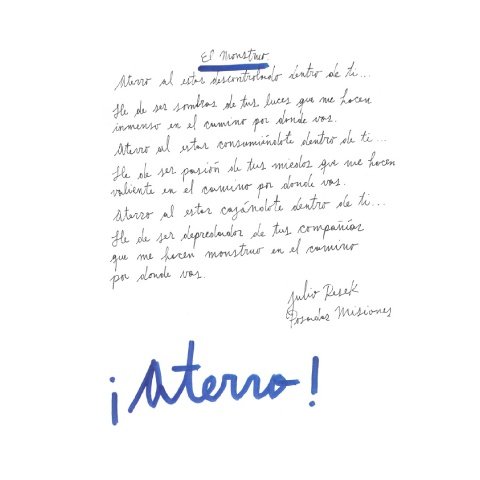 El Monstruo
Aterro al estar descontrolado dentro de ti...
He de ser sombras de tus luces que me hacen
inmenso en el camino por donde vas.
Aterro al estar consumiéndote dentro de ti...
He de ser pasión de tus miedos que me hacen
valiente en el camino por donde vas.
Aterro al estar cazándote dentro de ti...
He de ser depredador de tus compañías
que me hacen monstruo en el camino
por donde vas.
Julio Resek
Posadas Misiones
¡Aterro!